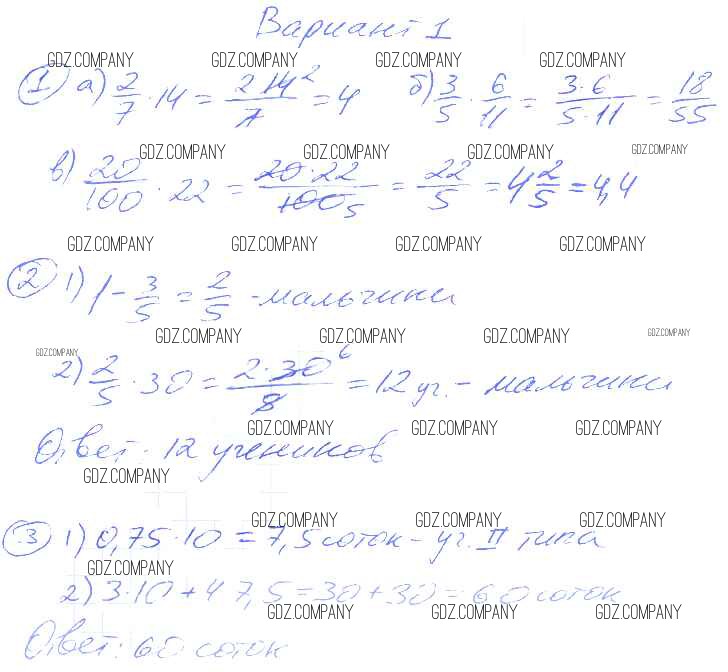 Вариант 1
GDZ.COMPANY GDZ.COMPANY GDZ.COMPANY GDZ.COMPANY
① а) 2/7 · 14 = 2 14²/7 = 4 б) 3/5 · 6/11 = 3·6/5·11 = 18/55
GDZ.COMPANY GDZ.COMPANY GDZ.COMPANY GDZ.COMPANY
в) 20/100 · 22 = 20·22/100 5 = 22/5 = 4 2/5 = 4,4
GDZ.COMPANY GDZ.COMPANY GDZ.COMPANY GDZ.COMPANY
② 1) 1 - 3/5 = 2/5 - мальчики
GDZ.COMPANY GDZ.COMPANY GDZ.COMPANY GDZ.COMPANY
GDZ.COMPANY
2) 2/5 · 30 = 2·30⁶/5 = 12 уч. - мальчики
GDZ.COMPANY GDZ.COMPANY GDZ.COMPANY
Ответ: 12 учеников
GDZ.COMPANY
GDZ.COMPANY GDZ.COMPANY GDZ.COMPANY
③ 1) 0,75·10 = 7,5 соток - уч. II типа
GDZ.COMPANY
2) 3·10 + 4 7,5 = 30 + 30 = 60 соток
GDZ.COMPANY GDZ.COMPANY GDZ.COMPANY
Ответ: 60 соток